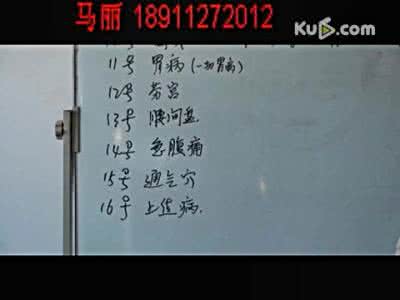 马丽 18911272012
Ku6.com
11号 胃病(一切胃病)
12号 劳宫
13号 腰间盘
14号 急腹痛
15号 通气穴
16号